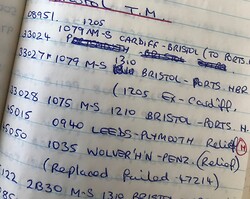 T.M.
08951. 1205
33024 1079 M-S CARDIFF-BRISTOL (TO PORTS.
33027 1079 M-S 1310 BRISTOL-PORTS. HBR
(1205 Ex-Cardiff.
33028 1075 M-S 1210 BRISTOL-PORTS.
45015 0940 LEEDS-PLYMOUTH Relief
45050 1035 WOLVER'H'N-PENZ. (Relief)
(Replaced failed 47214)
122 2B30 M-S 1310 BRISTOL-